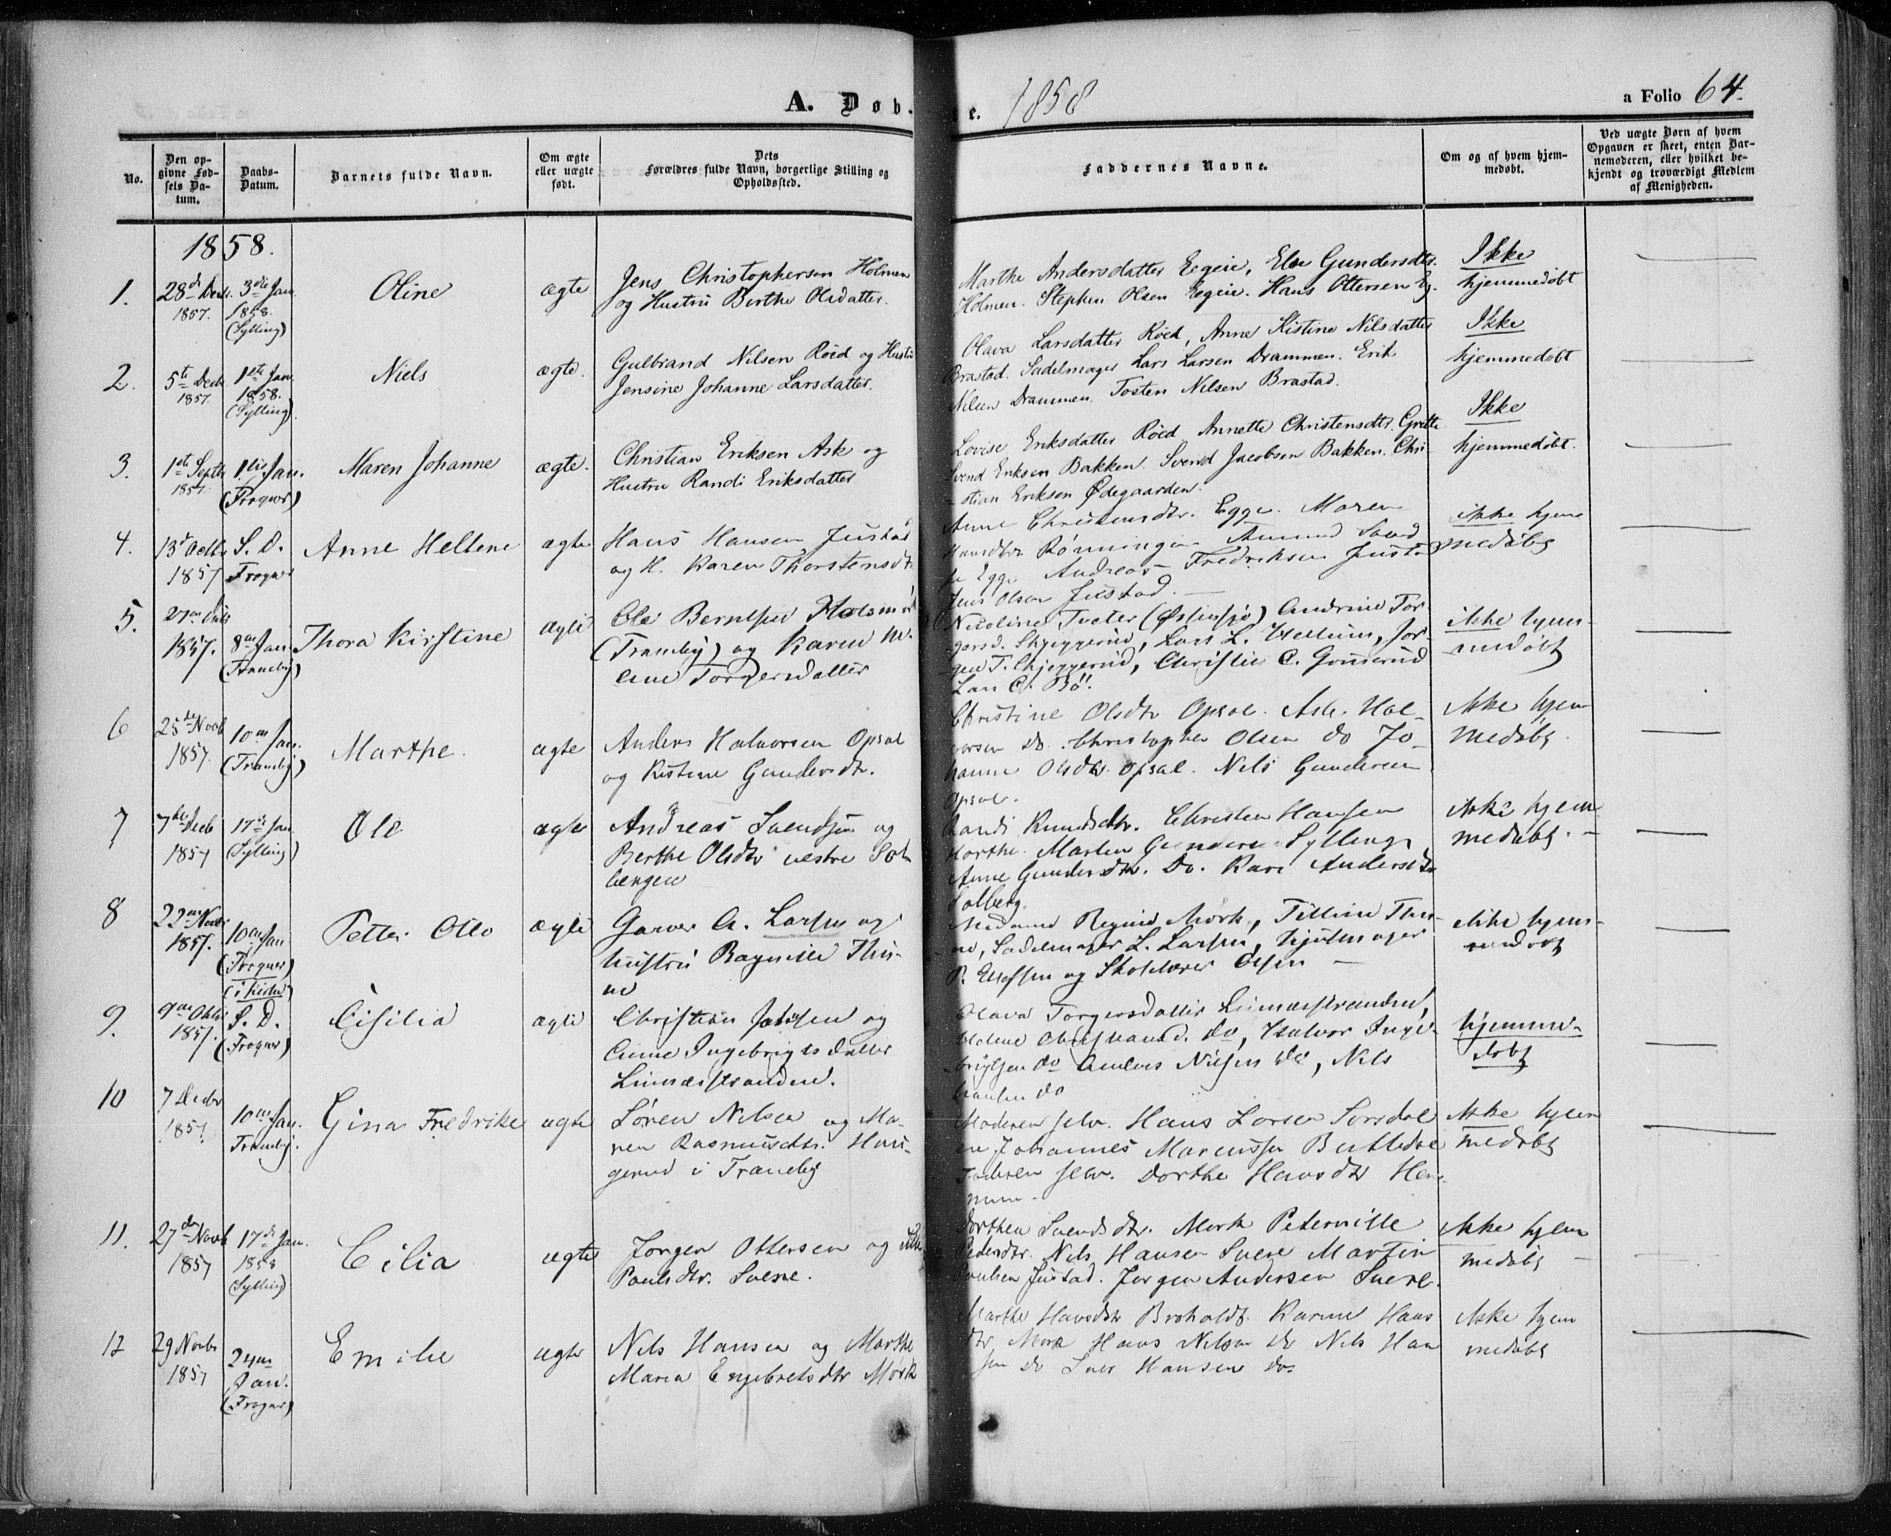 A. Døb.e. 1858
a Folio 64.
No.
Den opgivne Fødsels Datum.
Daabs-Datum.
Barnets fulde Navn.
Om ægte eller uægte født.
Dets Forældres fulde Navn, borgerlige Stilling og Opholdssted.
Faddernes Navne.
Om og af hvem hjemmedøbt.
Ved uægte Børn af hvem Opgaven er skeet, enten Barnemoderen, eller hvilket bekjendt og troværdigt Medlem af Menigheden.
1858.
1.
28de Decbr.
1857.
3die Jan.
1858.
(Sylling)
Oline
ægte
Jens Christophersen Holmen
og Hustru Berthe Olsdatter.
Marthe Andersdatter Egeie, Else Gundersdtr.
Holmen. Stephen Olsen Egeie. Hans Ottersen Eg.
Ikke
hjemmedøbt
2.
5te Decbr
1857.
1ste Jan.
1858.
(Sylling)
Niels
ægte.
Gulbrand Nilsen Röed og Hustru
Jensine Johanne Larsdatter.
Olava Larsdatter Röed, Anne Kistine Nilsdatter
Brastad. Sadelmager Lars Larsen Drammen. Erik
Nilsen Drammen. Tosten Nilsen Brastad.
Ikke
hjemmedøbt
3.
1ste Septbr
1857.
1ste Jan.
(Frogner)
Maren Johanne
ægte.
Christian Eriksen Ask og
Hustru Randi Eriksdatter
Lovise Eriksdatter Röed Annette Christensdtr. Gritte
Svend Eriksen Bakken. Svend Jacobsen Bakken. Chri
stian Eriksen Ødegaarden.
Ikke
hjemmedøbt.
4.
13de Octbr
1857
S. D.
Frogner
Anne Hellene
ægte
Hans Hansen Justad
og H. Karen Thorstensdtr
Anne Christensdtr. Egge. Maren
Hansdtr Rönningen Amund
Egge Andreas Fredriksen Justad
Jens Olsen Justad.
ikke hjem
medøbt
5.
1857.
8de Jan
(Tranby)
Thora Kirstine
ægte
Ole Berntsen
(Tranby) og Karen
Torgersdatter
Nicoline Tveter (Østensjø) Andrine Tor
gersd. Skjeggerud, Lars L. Hellum, Jor
gen T. Skjeggerud, Christen C. Gunnerud
Lars C. Bö.
ikke hjem
medøbt
6
25de Novb
1857.
10de Jan.
(Tranby)
Marthe.
ægte
Anders Halvorsen Opsal
og Kistine Gundersdtr.
Christine Olsdtr Opsal. Ask. Hal
vorsen do. Christopher Olsen do Jo
hanne Olsdtr. Opsal. Nils Gundersen
Opsal.
Ikke hjem
medøbt.
7
7de Decb
1857
17de Jan
(Sylling)
Ole
ægte
Andreas Svendsen og
Berthe Olsdtr vestre Sol
bergen
Randi Knudsdtr. Christen Hansen
Horthe. Marten Gundersen Sylling
Anne Gundersdtr. Do. Kari Andersdtr
Solberg.
ikke hjem
medøbt.
8
22de Novbr
1857.
10de Jan
(Frogner)
(i Kirke)
Petter Otto
ægte
Garver A. Larsen og
Hustru Ragnilde Thu
ne
Madame Mørk, Thu
ne, Sadelmager L. Larsen, Hjulmager
P. Ellefsen og Skolelærer Olsen
ikke hjem
medøbt
9.
9de Octbr
1857.
S. D.
(Frogner)
Cisilia
ægte
Christian Jansen og
Anne Ingebrigtsdatter
Linnæsstranden.
Olava Torgersdatter Linnæsstranden,
Helene Christiansd. do, Halvor Inge
brigtsen do Anders Nilsen do, Nils
Hansen do
hjemme-
døbt
10
7 Decbr
1857.
10de Jan.
Tranby.
Gina Fredrike
ægte
Sören Nilsen og Ma
ren Rasmusdtr. Hau
gerud i Tranby
Moderen selv. Hans Larsen Sorsdal
Johannes Marcussen Buttedal
Faderen selv. Dorthe Hansdtr Hen
num.
ikke hjem
medøbt
11.
27de Novb
1857
17de Jan.
1858
(Sylling)
Cilia
ægte
Jorgen Ottersen og
Paulsdtr. Svere.
Dorthea Svendsdtr. Mork Peternille
Pedersdtr. Nils Hansen Svere Martin
Paulsen Justad. Jorgen Andersen Svere.
ikke hjem
medøbt
12
29 Novbr
1857
24de
Jan.
(Frogner)
Emilie
ægte
Nils Hansen og Marthe
Maria Engebretsdtr Mork
Marthe Hansdtr Broholdt. Karine Hans
dtr Mork Hans Nilsen do Nils Han
sen do Iver Hansen do.
ikke hjem
medøbt